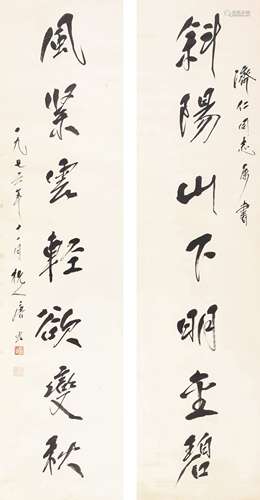 濟仁同志屬書
斜陽山下明金碧
風緊雲輕欲變秋
一九七六年十一月杭人唐雲